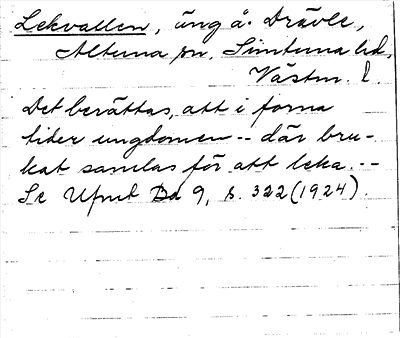 Lekvallen, äng å Drävle,
Altuna sn, Simtuna hd,
Västm. l.
Det berättas, att i forna
tider ungdomen -- där bru-
kat samlas för att leka. --
Se Upml Bd 9, s. 322 (1924).